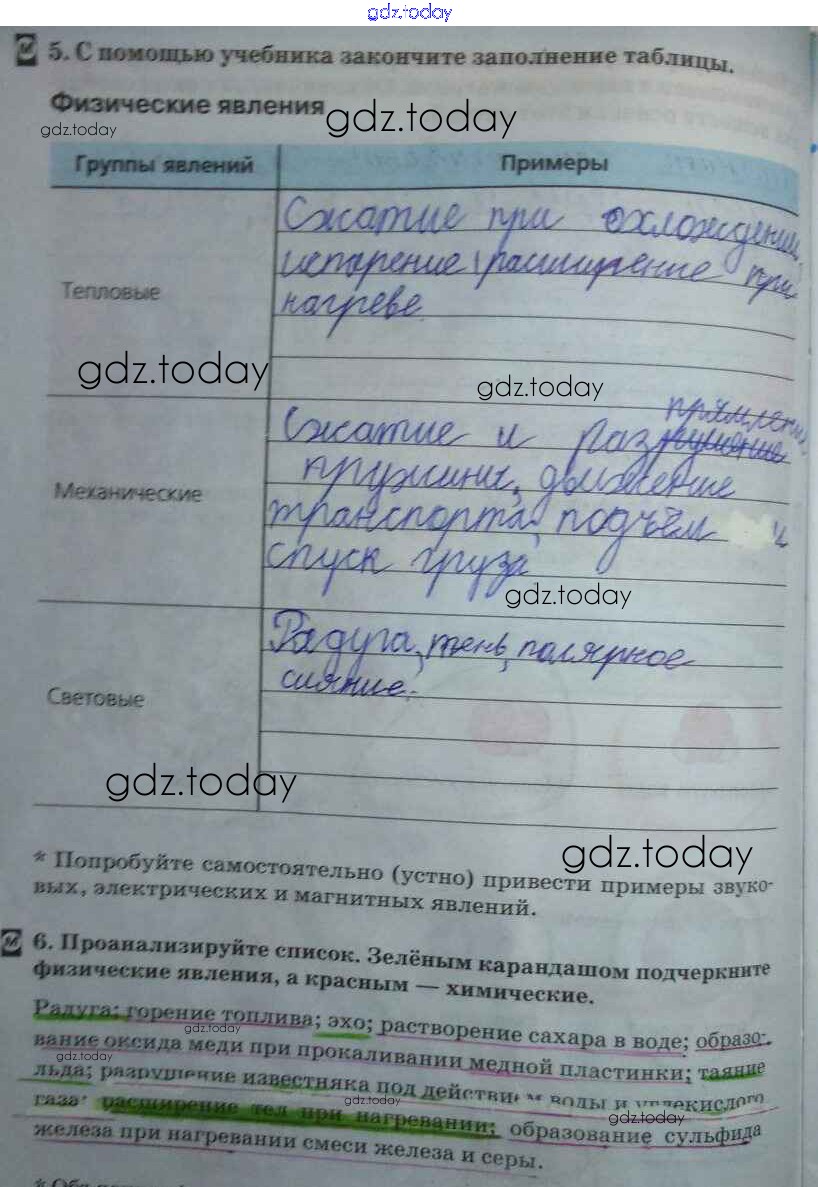 gdz.today
5. С помощью учебника закончите заполнение таблицы.
Физические явления
gdz.today
gdz.today
Группы явлений
Примеры
Тепловые
Сжатие при охлождении,
испорение, расширение при
нагреве.
gdz.today
gdz.today
Механические
прямление
Сжатие и раз
пружины, движение
транспорта, подъём и
спуск груза
gdz.today
Световые
Радуга, тень, полярное
сияние.
gdz.today
gdz.today
* Попробуйте самостоятельно (устно) привести примеры звуко-
вых, электрических и магнитных явлений.
6. Проанализируйте список. Зелёным карандашом подчеркните
физические явления, а красным — химические.
Радуга; горение топлива; эхо; растворение сахара в воде; образо-
gdz.today
вание оксида меди при прокаливании медной пластинки; таяние
gdz.today
льда; разрушение известняка под действием воды и углекислого
gdz.today
газа; расширение тел при нагревании; образование сульфида
gdz.today
железа при нагревании смеси железа и серы.